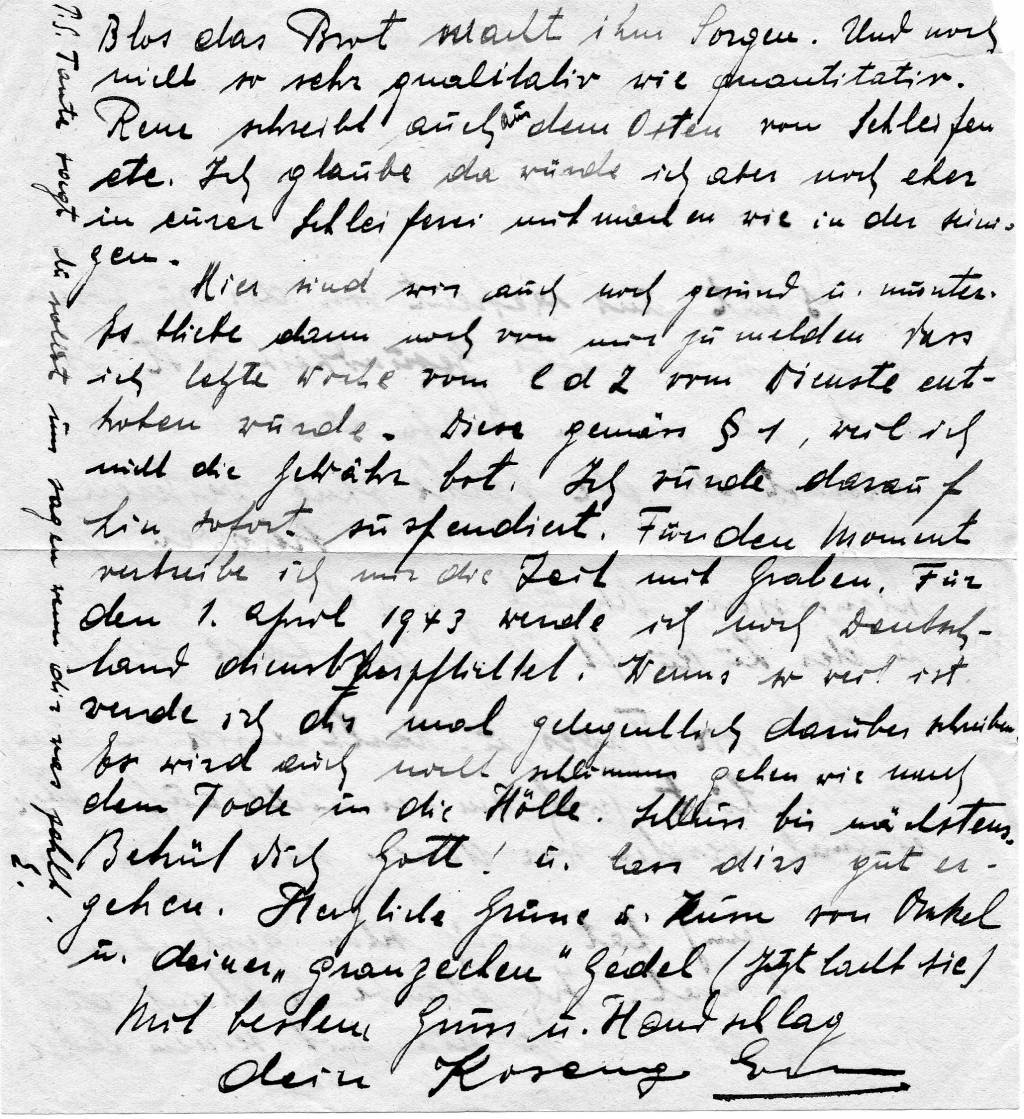 Blos das Brot macht ihm Sorgen. Und noch
nicht so sehr qualitativ wie quantitativ.
Rene schreibt auch aus dem Osten von Schleifen
etc. Ich glaube da würde ich aber noch eher
in eurer Schleiferei mitmachen wie in der seini-
gen.
Hier sind wir auch noch gesund u. munter.
Es bliebe dann noch von mir zu melden dass
ich letzte Woche vom C d Z vom Dienste ent-
hoben wurde. Diese gemäss § 1, weil ich
nicht die Gewähr bot. Ich wurde darauf
hin sofort suspendiert. Für den Moment
vertreibe ich mir die Zeit mit Graben. Für
den 1. April 1943 werde ich noch Deutsch-
land dienstverpflichtet. Wenns so weit ist
werde ich dir mal gelegentlich darüber schreiben.
Es wird auch nicht schlimmer gehen wie nach
dem Tode in die Hölle. Schluss bis nächstens.
Behüt dich Gott! u. lass dirs gut er-
gehen. Herzliche Grüsse u. Küsse von Onkel
u. deiner „granzechen" Gedel (Jetzt lacht sie)
Mit bestem Gruss u. Handschlag
dein Koseng
P.S. Tante sagt du sollst uns sagen wenn dir was fehlt.
E.